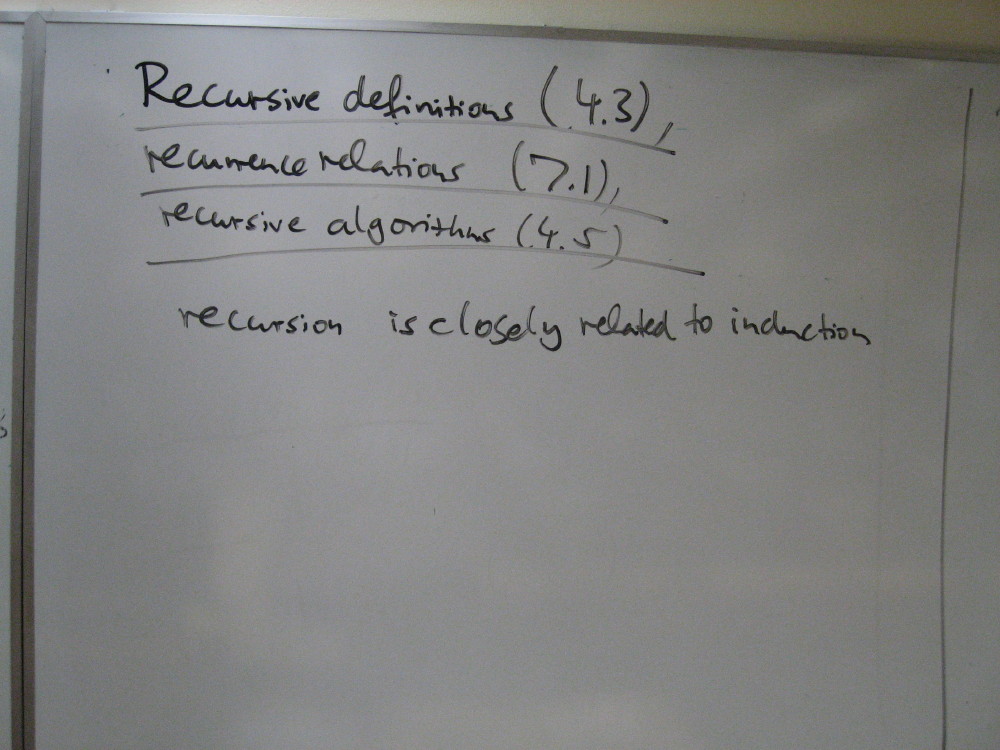 Recursive definitions (4.3),
recurrence relations (7.1),
recursive algorithms (4.5)
recursion is closely related to induction